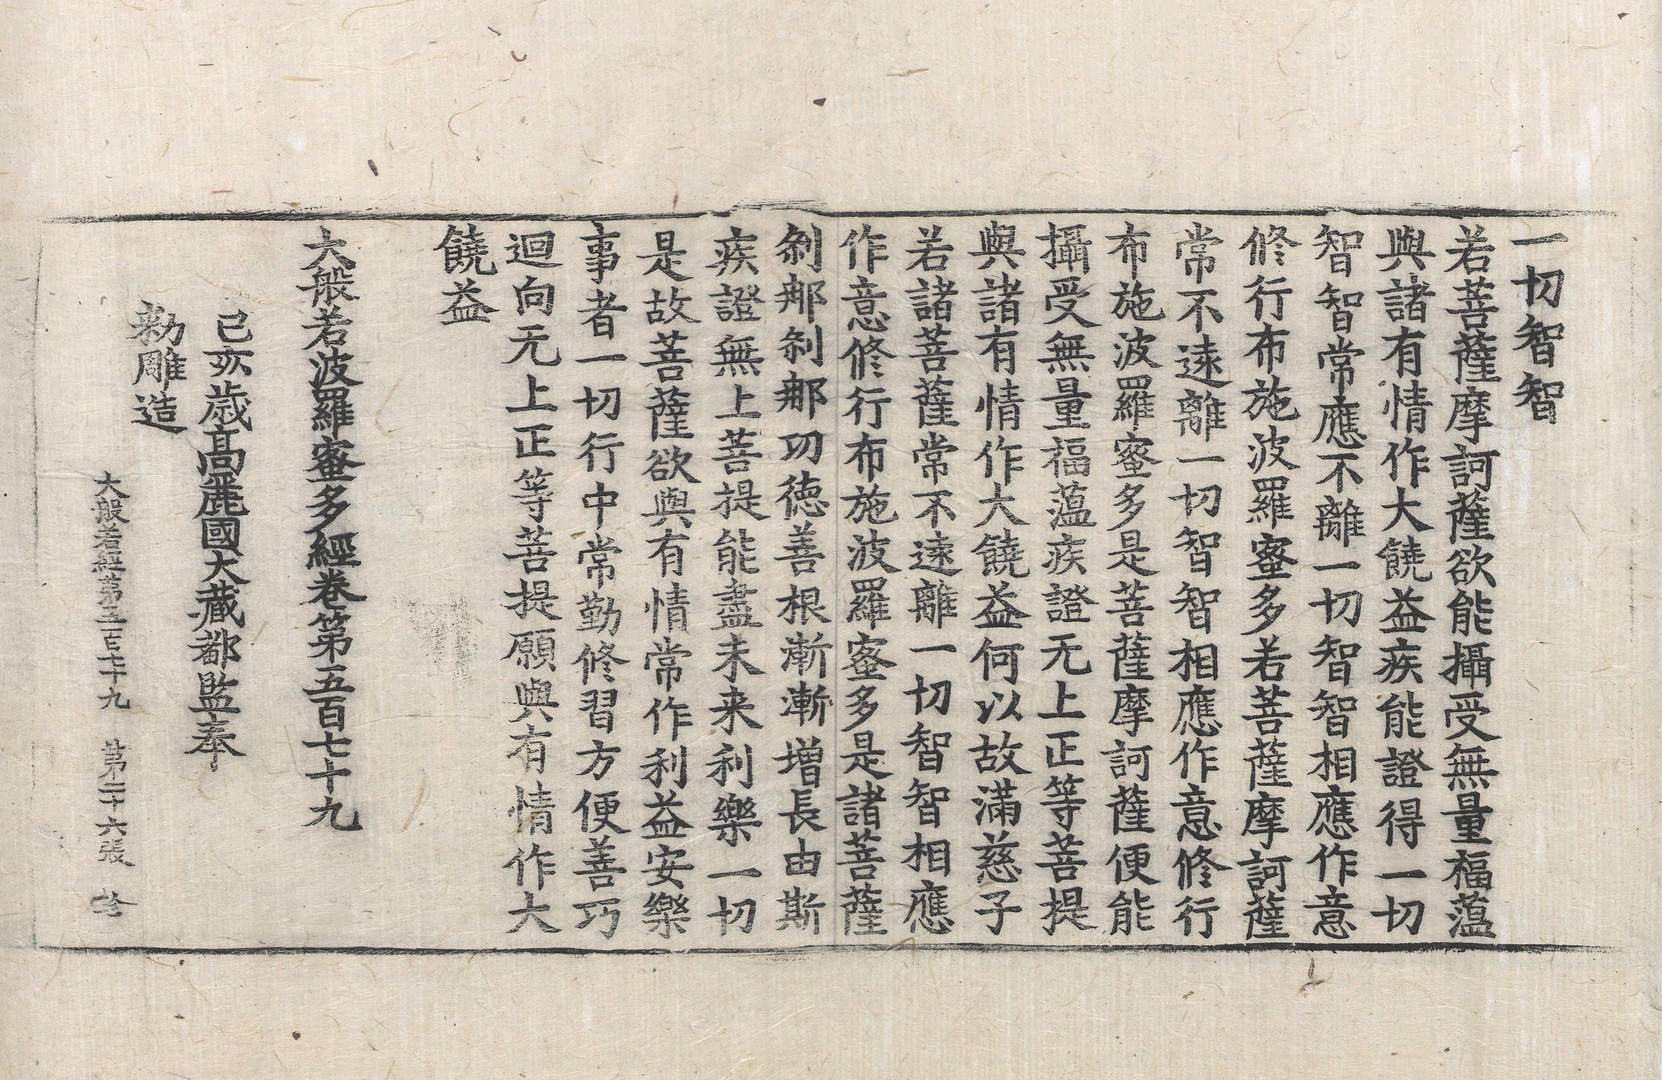 一切智智
若菩薩摩訶薩欲能攝受無量福蘊
與諸有情作大饒益疾能證得一切
智智常應不離一切智智相應作意
修行布施波羅蜜多若菩薩摩訶薩
常不遠離一切智智相應作意修行
布施波羅蜜多是菩薩摩訶薩便能
攝受無量福蘊疾證无上正等菩提
與諸有情作大饒益何以故滿慈子
若諸菩薩常不遠離一切智智相應
作意修行布施波羅蜜多是諸菩薩
剎那剎那功德善根漸漸增長由斯
疾證無上菩提能盡未来利樂一切
是故菩薩欲與有情常作利益安樂
事者一切行中常勤修習方便善巧
迴向无上正等菩提願與有情作大
饒益
大般若波羅蜜多經卷第五百七十九
己亥歲高麗國大藏都監奉
勅雕造
大般若經第五百七十九 第二十六張